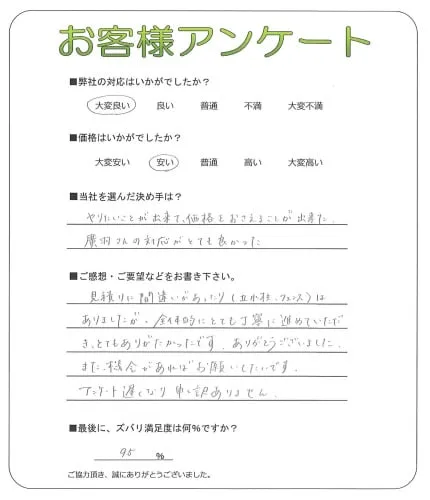 お客様アンケート
■弊社の対応はいかがでしたか？
大変良い 良い 普通 不満 大変不満
■価格はいかがでしたか？
大変安い 安い 普通 高い 大変高い
■当社を選んだ決め手は？
やりたいことが出来て、価格をおさえることが出来た。
廣羽さんの対応がとても良かった
■ご感想・ご要望などをお書き下さい。
見積りに間違いがあったり(立水栓、フェンス)は
ありましたが、全体的にとても丁寧に進めていただ
き、とてもありがたかったです。ありがとうございました。
また、機会があればお願いしたいです。
アンケート遅くなり申し訳ありません。
■最後に、ズバリ満足度は何%ですか？
95 %
ご協力頂き、誠にありがとうございました。